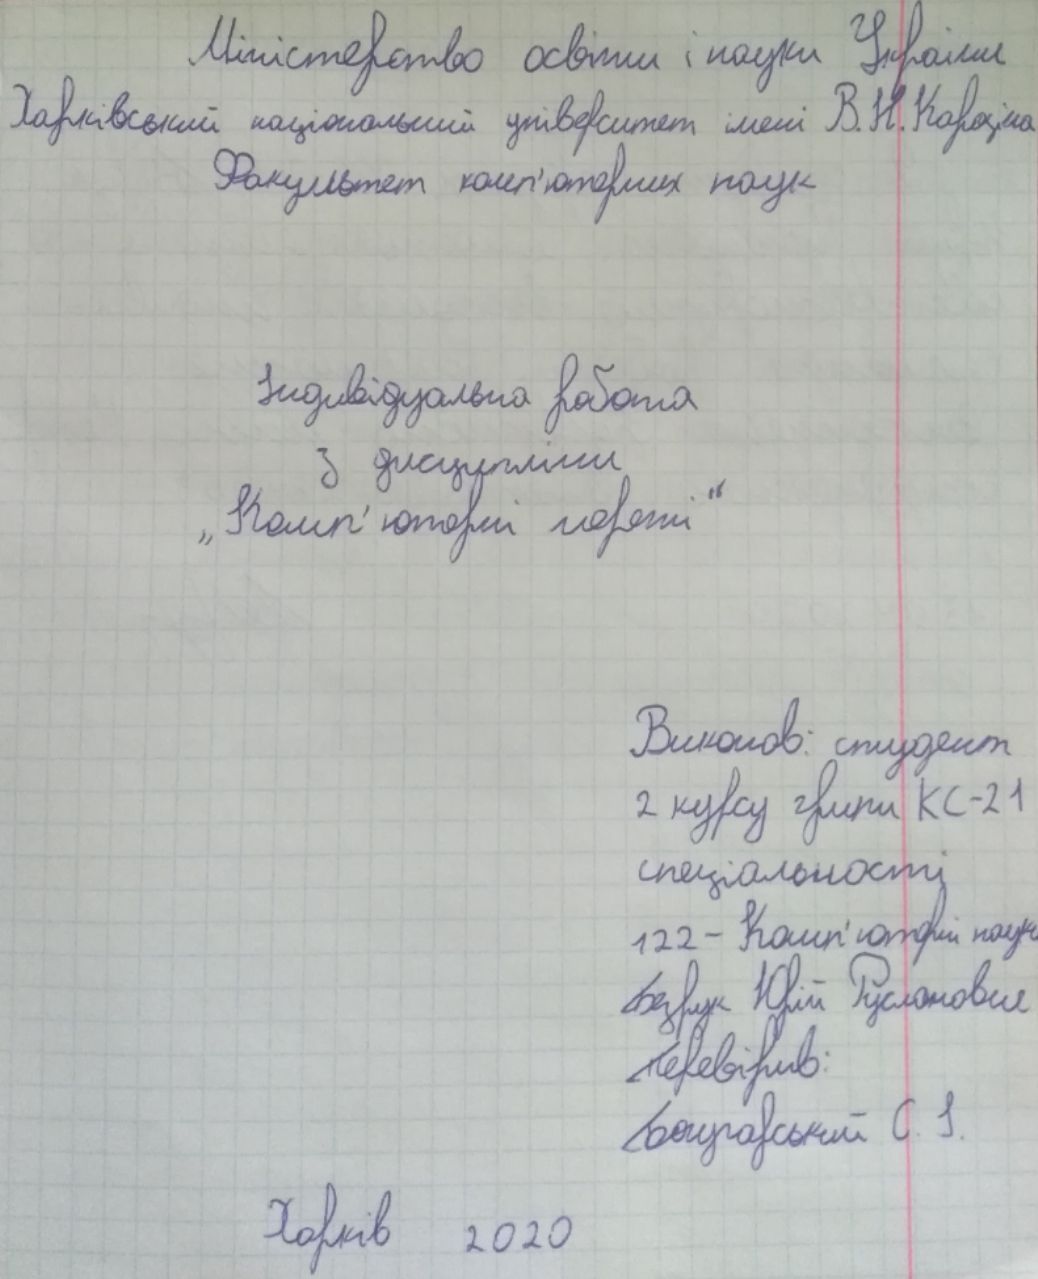 Міністерство освіти і науки України
Харківський національний університет імені В.Н. Каразіна
Факультет комп'ютерних наук
Індивідуальна робота
з дисципліни
„Комп'ютерні мережі“
Виконав: студент
2 курсу групи КС-21
спеціальності
122 - Комп'ютерні науки
Безрук Юрій Русланович
Перевірив:
С. І.
Харків 2020